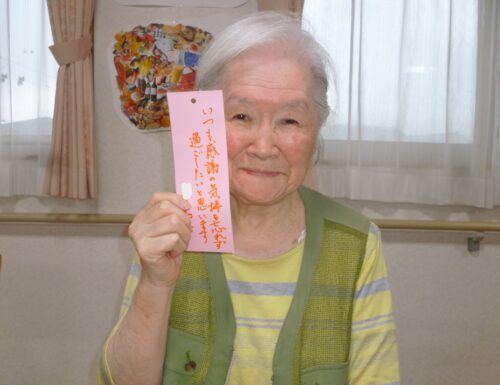 いつも感謝の気持を忘れず
過ごしたいと思います